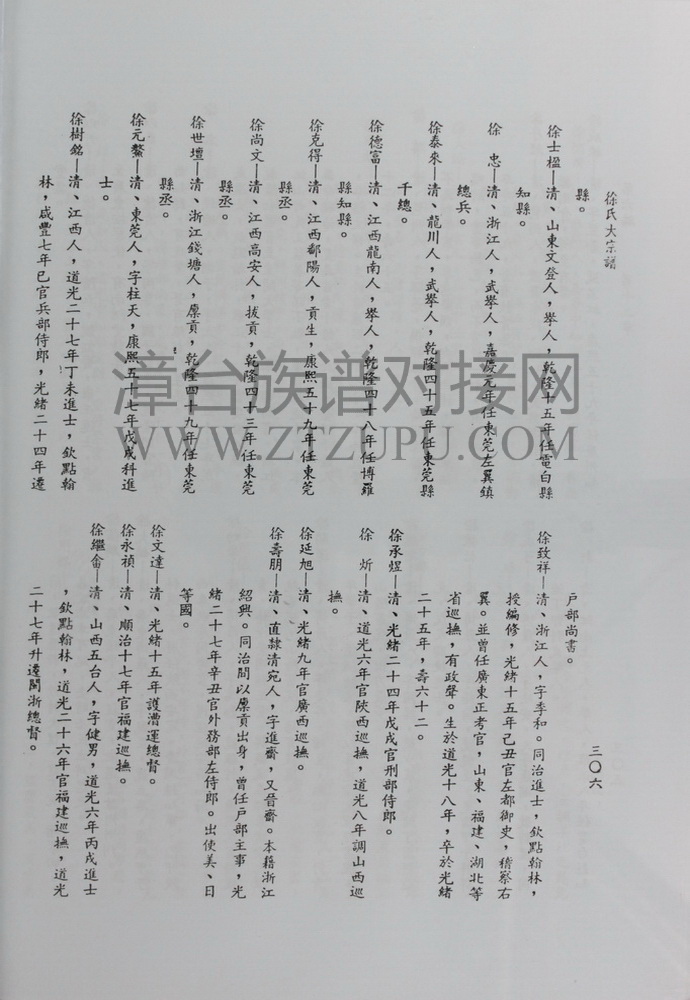 徐氏大宗譜
縣。
徐士楹—清、山東文登人，舉人，乾隆十五年任電白縣
知縣。
徐　忠—清、浙江人，武舉人，嘉慶元年任東莞左翼鎮
總兵。
徐泰來—清、龍川人，武舉人，乾隆四十五年任東莞縣
千總。
徐德富—清、江西龍南人，舉人，乾隆四十八年任博羅
縣知縣。
徐克得—清、江西鄱陽人，貢生，康熙五十九年任東莞
縣丞。
徐尚文—清、江西高安人，拔貢，乾隆四十三年任東莞
縣丞。
徐世壇—清、浙江錢塘人，廩貢，乾隆四十九年任東莞
縣丞。
徐元鰲—清、東莞人，字柱天，康熙五十七年戊戌科進
士。
徐樹銘—清、江西人，道光二十七年丁未進士，欽點翰
林，咸豐七年巳官兵部侍郎，光緒二十四年遷
戶部尚書。
徐致祥—清、浙江人，字季和。同治進士，欽點翰林，
授編修，光緒十五年己丑官左都御史，稽察右
翼。並曾任廣東正考官，山東、福建、湖北等
省巡撫，有政聲。生於道光十八年，卒於光緒
二十五年，壽六十二。
徐承煜—清、光緒二十四年戊戌官刑部侍郎。
徐　炘—清、道光六年官陝西巡撫，道光八年調山西巡
撫。
徐延旭—清、光緒九年官廣西巡撫。
徐壽朋—清、直隸清宛人，字進齋，又晉齋。本籍浙江
紹興。同治間以廩貢出身，曾任戶部主事，光
緒二十七年辛丑官外務部左侍郎。出使美、日
等國。
徐文達—清、光緒十五年護漕運總督。
徐永禎—清、順治十七年官福建巡撫。
徐繼畬—清、山西五台人，字健男，道光六年丙戌進士
，欽點翰林，道光二十六年官福建巡撫，道光
二十七年升遷閩浙總督。
三〇六
漳台族谱对接网
WWW.ZTZUPU.COM